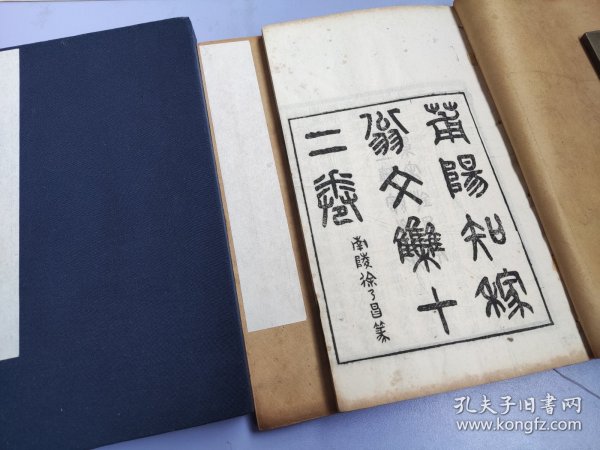 莆陽知稼
翁文集十
二卷
南陵徐乃昌篆
孔夫子旧书网
www.kongfz.com